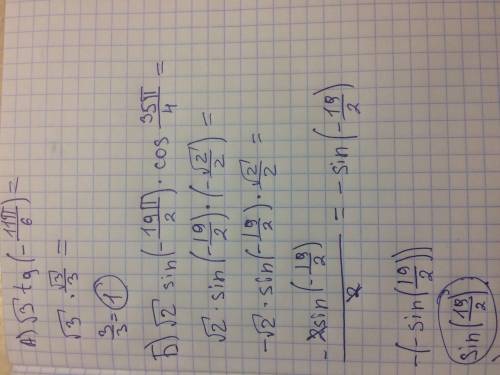 А) √3 tg(-11π/6) =
√3 · √3/3 =
3/3 = 1
Б) √2 · sin(-19π/2) · cos 35π/4 =
√2 · sin(-19/2) · (-√2/2) =
-√2 · sin(-19/2) · √2/2 =
-2sin(-19/2)/2 = -sin(-19/2)
-(-sin(19/2))
sin(19/2)